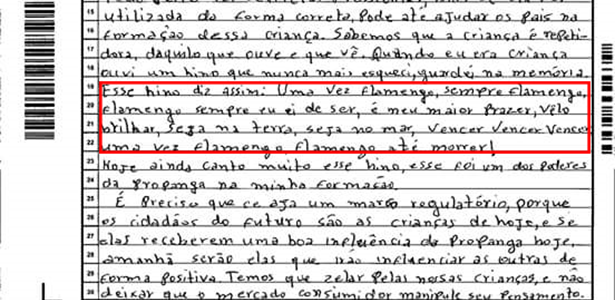 utilizada da forma correta, Pode até ajudar os pais na
formação dessa criança. Sabemos que a criança é repeti-
dora, daquilo que ouve e que vê. Quando eu era criança
ouvi um hino que nunca mais esqueci, guardei na memória.
Esse hino diz assim: Uma vez flamengo, sempre flamengo,
flamengo sempre eu ei de ser, é meu maior Prazer, velo
brilhar, seja na terra, seja no mar, vencer vencer vencer
uma vez flamengo, flamengo até morrer!
Hoje ainda canto muito esse hino, esse foi um dos poderes
da Propanga na minha formação.
É Preciso que ce aja um marco regulatório, porque
os cidadãos do futuro são as crianças de hoje, e se
elas receberem uma boa influência da Propanga hoje,
amanhã serão elas que irão influenciar as outras de
forma positiva. Temos que zelar Pelas nossas crianças, e não
deixar que o mercado consumidor manipule seu Pensamento.